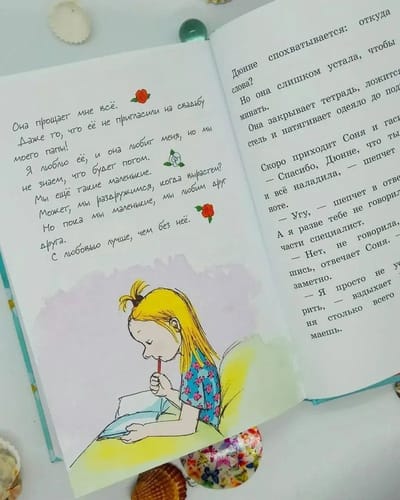 Она прощает мне всё.
Даже то, что её не пригласили на свадьбу
моего папы!
Я люблю её, и она любит меня, но мы
не знаем, что будет потом.
Мы ещё такие маленькие.
Может, мы раздружимся, когда вырастем?
Но пока мы маленькие, мы любим друг
друга.
С любовью лучше, чем без неё.
Дюнне спохватывается: откуда
слова?
Но она слишком устала, чтобы
мывать.
Она закрывает тетрадь, ложится
стель и натягивает одеяло до под
Скоро приходит Соня и гаси
— Спасибо, Дюнне, что ты
я всё наладила, — шепчет
воте.
— Угу, — шепчет в ответ
А я разве тебе не говорил
части специалист.
— Нет, не говорила,
шись, отвечает Соня. —
заметно.
— Я просто не ус
рить, — вздыхает
ня столько всего
маешь.